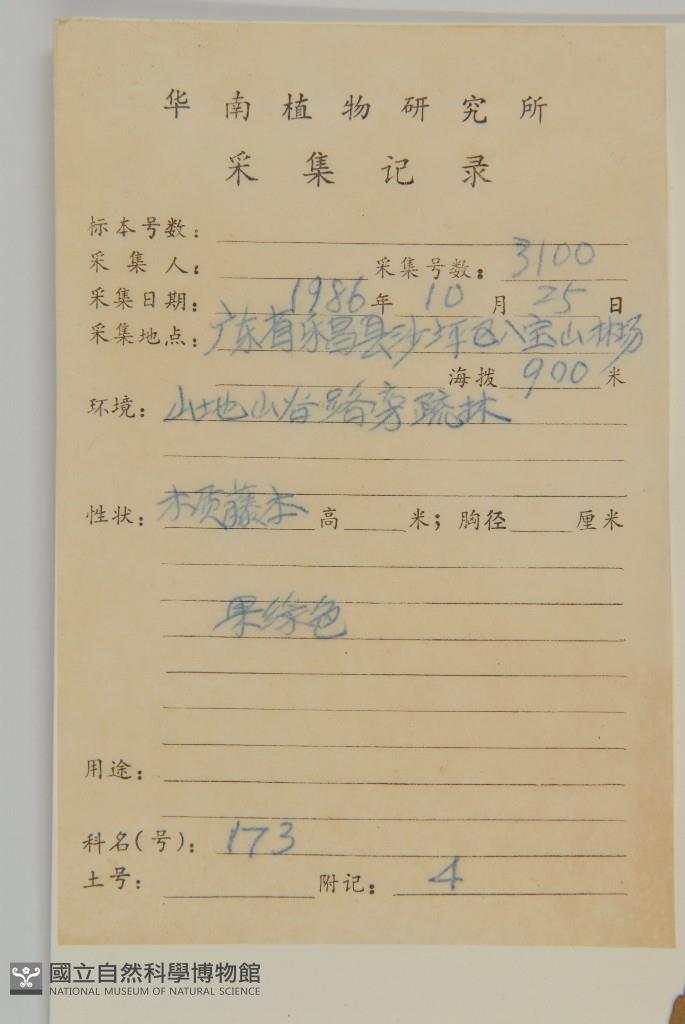 华南植物研究所
采集记录
标本号数：
采集人： 采集号数：3100
采集日期：1986年10月25日
采集地点：广东省乐昌县沙坪区八宝山林场
海拨900米
环境：山地山谷路旁疏林
性状：木质藤本高 米；胸径 厘米
果绿色
用途：
科名(号)：173
土号： 附记：4
國立自然科學博物館
NATIONAL MUSEUM OF NATURAL SCIENCE